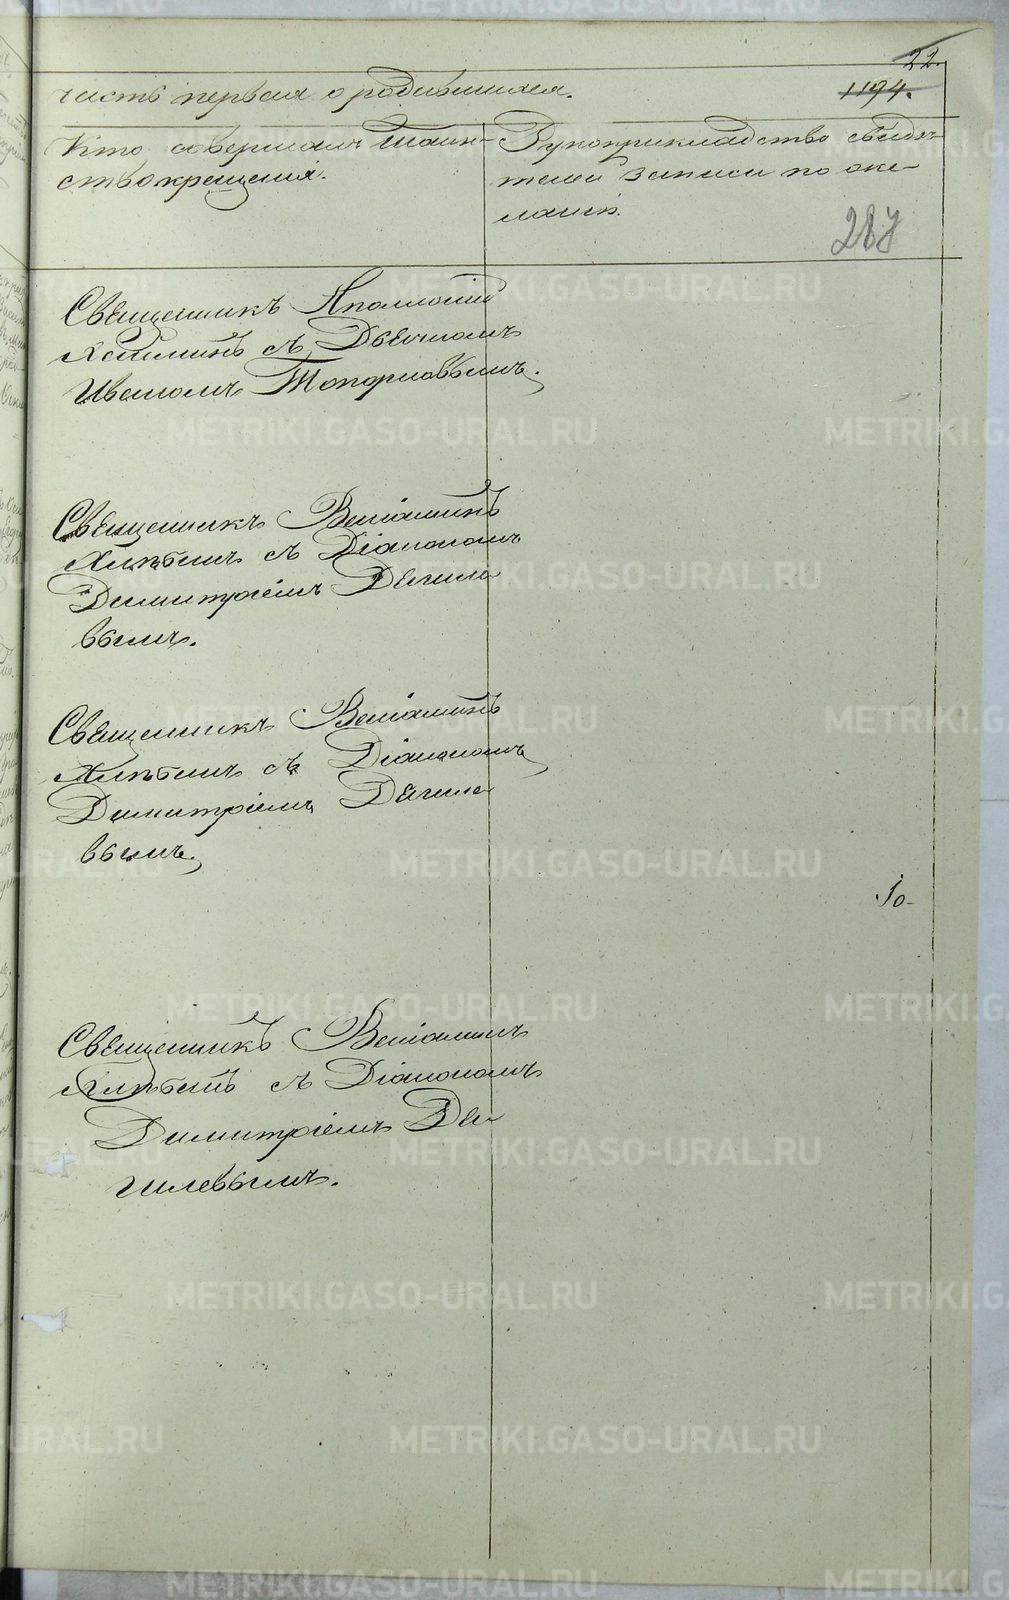 22.
часть первая о родившихся.
1194.
Кто совершалъ таин-
ство крещенія.
Рукоприкладство свидѣ-
телей записи по же-
ланію.
287
Священникъ Аполлоній
съ Дьячкомъ
Иваномъ Топорковымъ.
Священникъ Веніаминъ
Хлѣбинъ съ Діакономъ
Димитріемъ Дягиле
вымъ.
Священникъ Веніаминъ
Хлѣбинъ съ Діакономъ
Димитріемъ Дягиле
вымъ.
Священникъ Веніаминъ
Хлѣбинъ съ Діакономъ
Димитріемъ Дя
гилевымъ.
METRIKI.GASO-URAL.RU